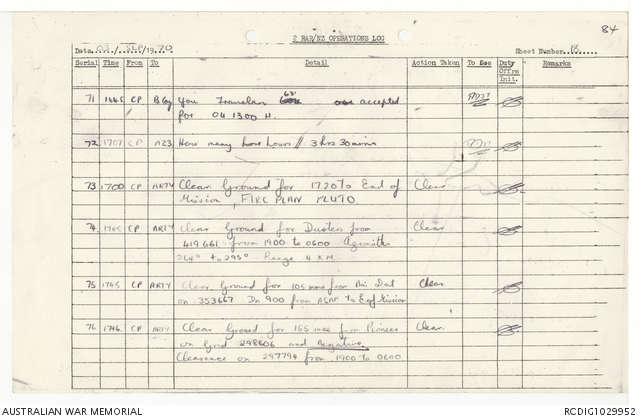 84
2 RAR/NZ OPERATIONS LOG
Date 03 / SEP / 19 70 Sheet Number 13
Serial Time From To Detail Action Taken To See Duty Offrs Init. Remarks
71 1645 CP You accepted
for 04 1300 H.
72 1707 CP A23 How many hours // 3 hrs 30 mins
73 1700 CP ARTY Clear Ground for 1720 to End of Clear
Mission, FIRE PLAN PLUTO
74 1705 CP ARTY Clear Ground for Dusters from Clear
419661 from 1900 to 0600
to 295° Range 4 KM.
75 1745 CP ARTY Clear Ground for 105 mm from Clear
on 353667 900 from ASAP to Eof Mission
76 1746 CP ARTY Clear Ground for 155 mm from Clear
on Grid 298606 and Negative
Clearance on 297794 from 1900 to 0600
AUSTRALIAN WAR MEMORIAL RCDIG1029952